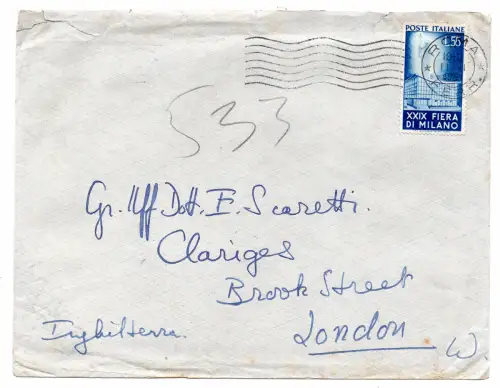 POSTE ITALIANE
L.55
ROMA
XXIX FIERA
DI MILANO
533
Gr. Uff. Dott. E. Scaretti.
Clariges
Brook Street
London
W.
Inghilterra.